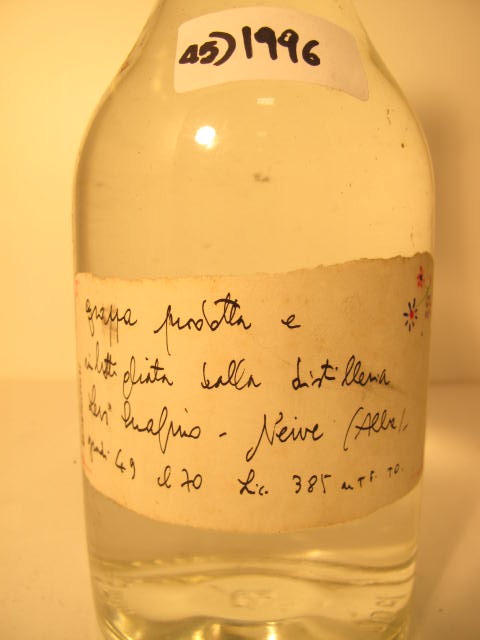 45) 1996
grappa prodotta e
imbottigliata dalla distilleria
Levi Serafino - Neive (Alba).
gradi 49 cl 70 Lic. 385 UTF. TO.